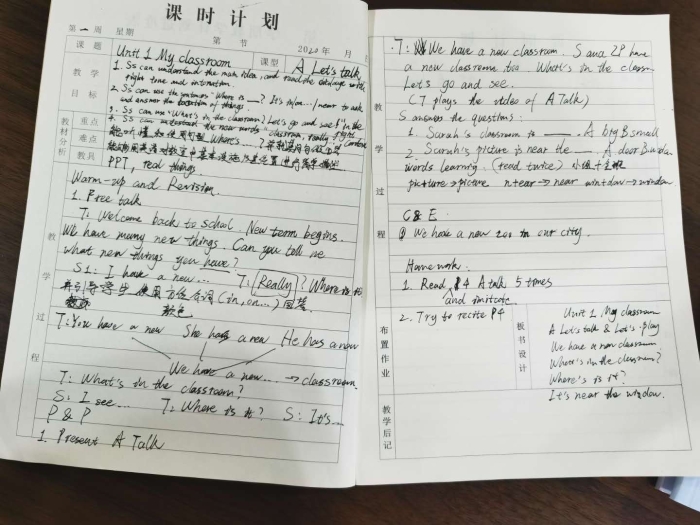 课时计划
第一周 星期 第 节 2020年 月
课题 Unit 1 My classroom 课型 A Let's talk
教学目标
1. Ss can understand the main idea, and read the dialogue with
right tone and intonation.
2. Ss can use the sentences "Where is ___? It's in/on.../near to ask
and answer the location of things.
3. Ss can use "What's in the classroom? Let's go and see!" in the
4. Ss can understand the new words: classroom, really
教材分析
重点
难点
教具 PPT, real things.
教学过程
Warm-up and Revision.
1. Free talk
T: Welcome back to school. New term begins.
We have many new things. Can you tell me
what new things you have?
S1: I have a new... T: Really? Where is it?
并引导学生使用方位介词(in, on...)回答
T: You have a new She has a new He has a new
We have a new... → classroom
T: What's in the classroom?
S: I see... T: Where is it? S: It's...
P & P
1. Present A Talk
教学过程
T: We have a new classroom. S and ZP have
a new classroom too. What's in the classroom
Let's go and see.
(T plays the video of A Talk)
S answers the questions:
1. Sarah's classroom is ___. A big B small
2. Sarah's picture is near the ___. A door B window
words learning. (read twice)
picture→picture n+ear→near win+dow→window
C & E
① We have a new zoo in our city.
Homework.
1. Read P4 A talk 5 times
and imitate.
布置作业
2. Try to recite P4
板书设计
Unit 1 My classroom
A Let's talk & Let's play
We have a new classroom
What's in the classroom?
Where's is it?
It's near the window.
教学后记